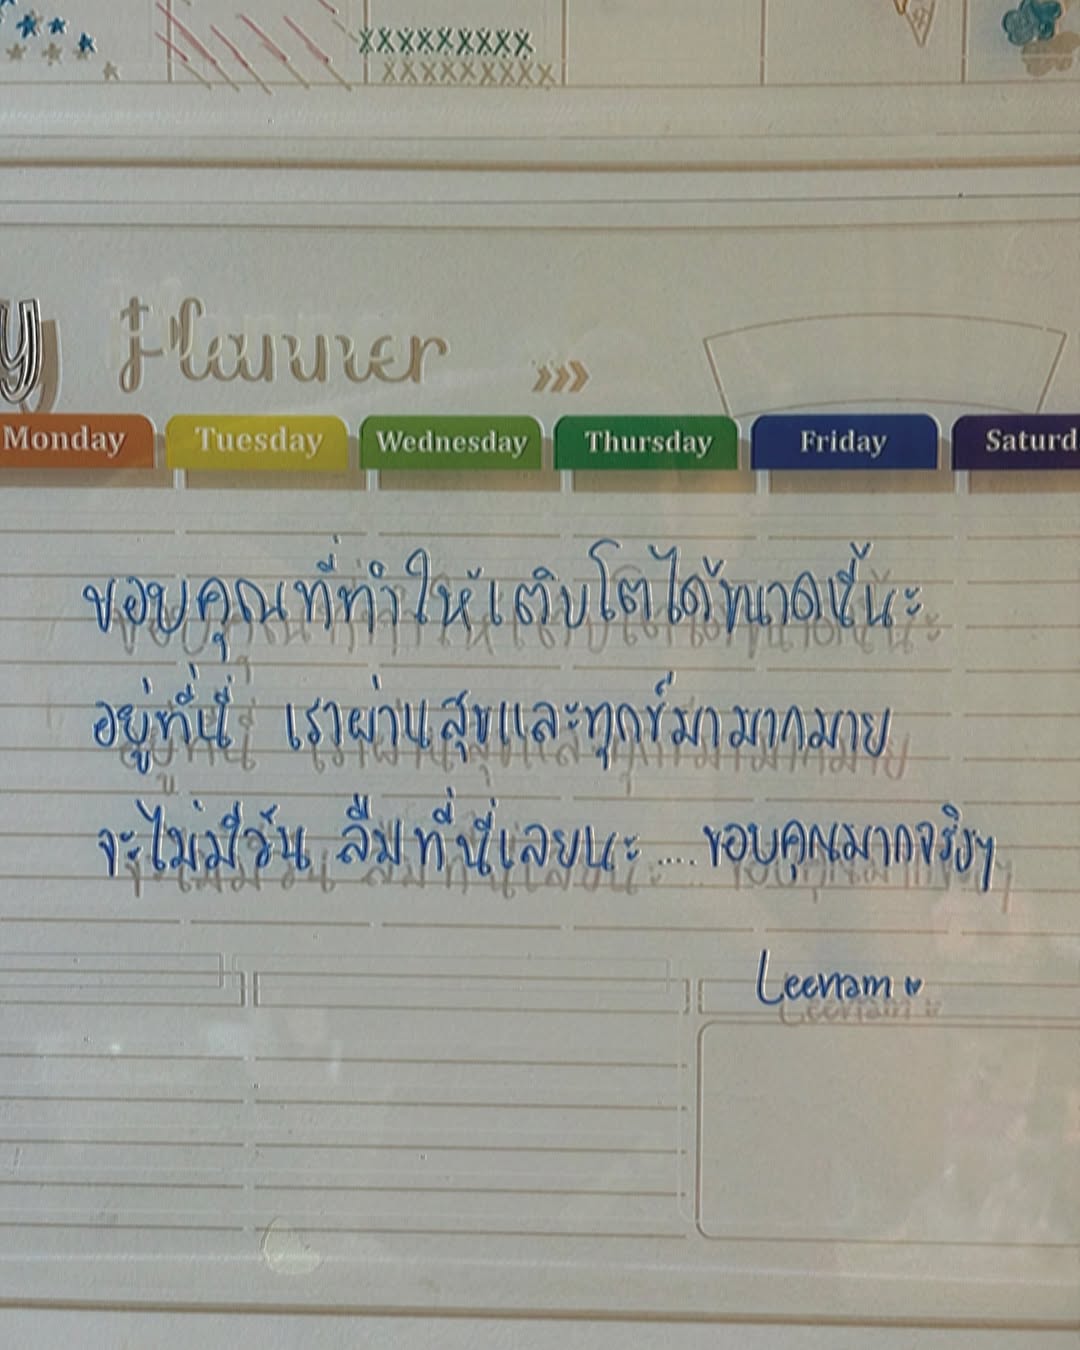 XXXXXXXXX
y Planner
Monday Tuesday Wednesday Thursday Friday Saturd
ขอบคุณที่ทำให้เติบโตได้ขนาดนี้นะ
อยู่ที่นี่ เราผ่านสุขและทุกข์มามากมาย
จะไม่มีวัน ลืมที่นี่เลยนะ .... ขอบคุณมากจริงๆ
Leenam